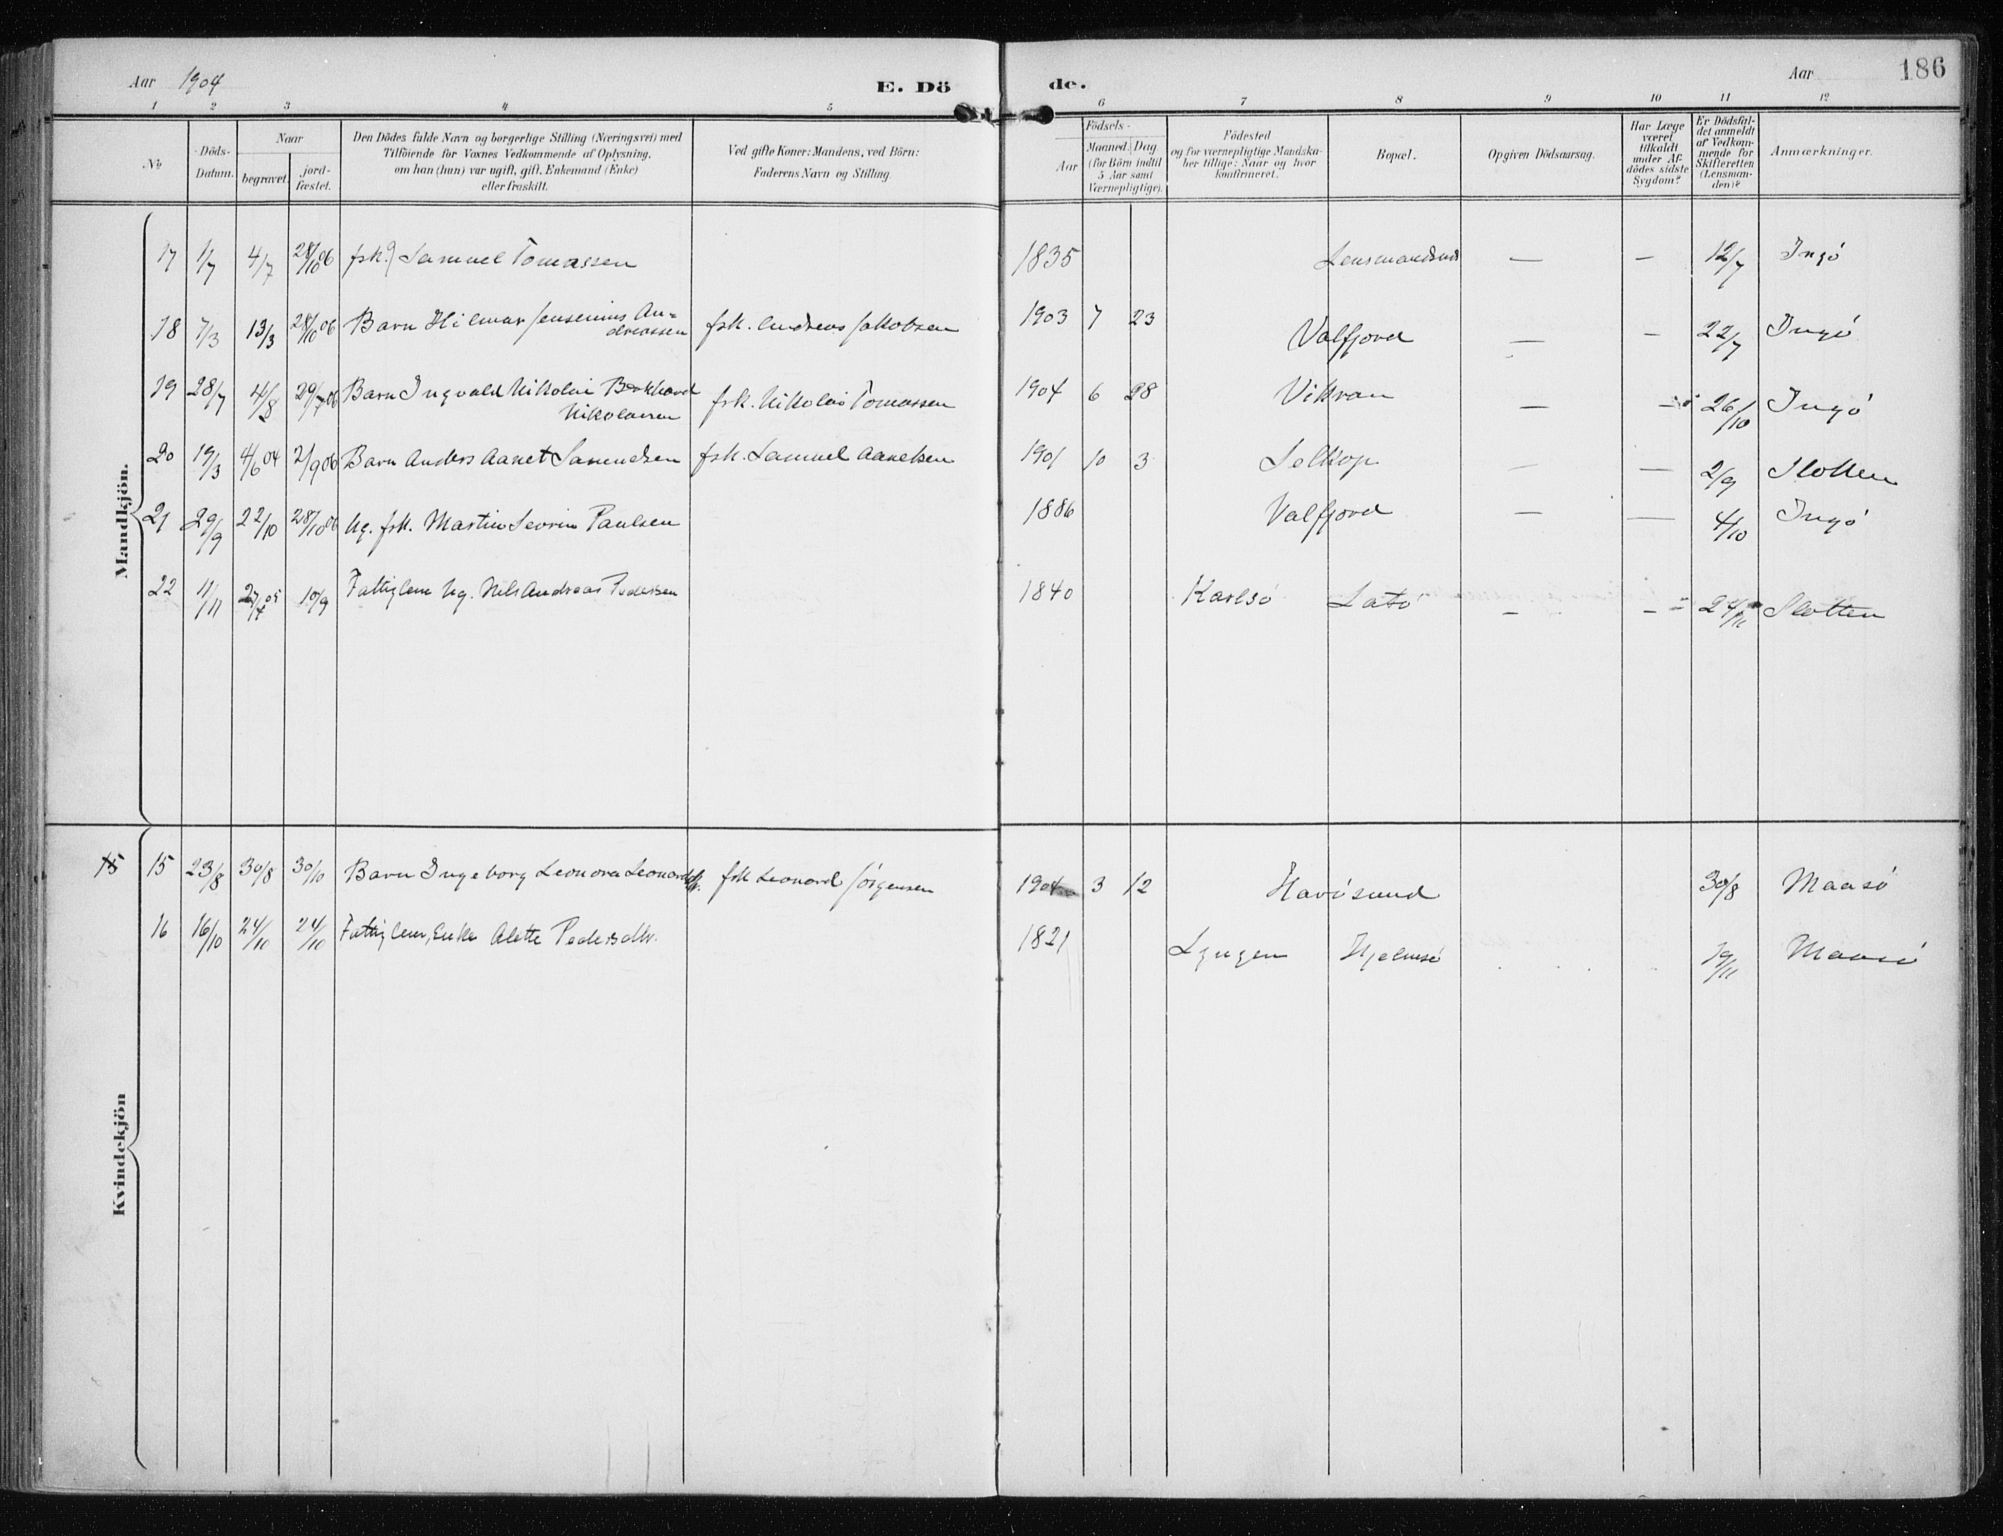 Aar 1904
E. Dö
de.
Aar
186
1 2 3 4 5 6 7 8 9 10 11 12
No
Döds-
Datum.
Naar
begravet.
jord-
fæstet.
Den Dödes fulde Navn og borgerlige Stilling (Næringsvei) med
Tilföiende for Voxnes Vedkommende af Oplysning,
om han (hun) var ugift, gift, Enkemand (Enke)
eller fraskilt.
Ved gifte Koner: Mandens, ved Börn:
Faderens Navn og Stilling.
Födsels-
Aar
Maaned.
Dag
(for Börn indtil
5 Aar samt
Værnepligtige).
Födested
og for værnepligtige Mandska-
ber tillige: Naar og hvor
konfirmeret.
Bopæl.
Opgiven Dödsaarsag.
Har Læge
været
tilkaldt
under Af-
dödes sidste
Sygdom?
Er Dödsfal-
det anmeldt
af Vedkom-
mende for
Skifteretten
(Lensman-
den)?
Anmærkninger.
Mandkjön.
17 1/7 4/7 28/10 06 fsk. Samuel Tomassen 1835 — — 12/7 Ingö
18 7/3 13/3 28/10 06 Barn Hilmar Jensenius An=
dreassen fsk. Andreas Jakobsen 1903 7 23 Valfjord — — 22/7 Ingö
19 28/7 4/8 29/7 06 Barn Ingvald Nikolai
Nikolaisen fsk. Nikolai Tomassen 1904 6 28 Vikran — — 26/10 Ingö
20 19/3 4/6 04 2/9 06 Barn Anders Aanet Samuelsen fsk. Samuel Aanetsen 1901 10 3 Selkop — — 2/9 Slotten
21 29/9 22/10 28/10 06 Ug. fsk. Martin Sevrin Paulsen 1886 Valfjord — — 4/10 Ingö
22 11/11 10/9 Fattiglem Ug. Nils Andreas Pedersen 1840 Karlsö Latö — — 24/11 Slotten
Kvindekjön
15 15 23/8 30/8 30/10 Barn Ingeborg Leonora Leonardsdtr. fsk Leonard Jörgensen 1904 3 12 Havösund 30/8 Maasö
16 16/10 24/10 24/10 Fattiglem, Enke Alette Pedersdtr. 1821 Lyngen Hjelmsö 19/11 Maasö